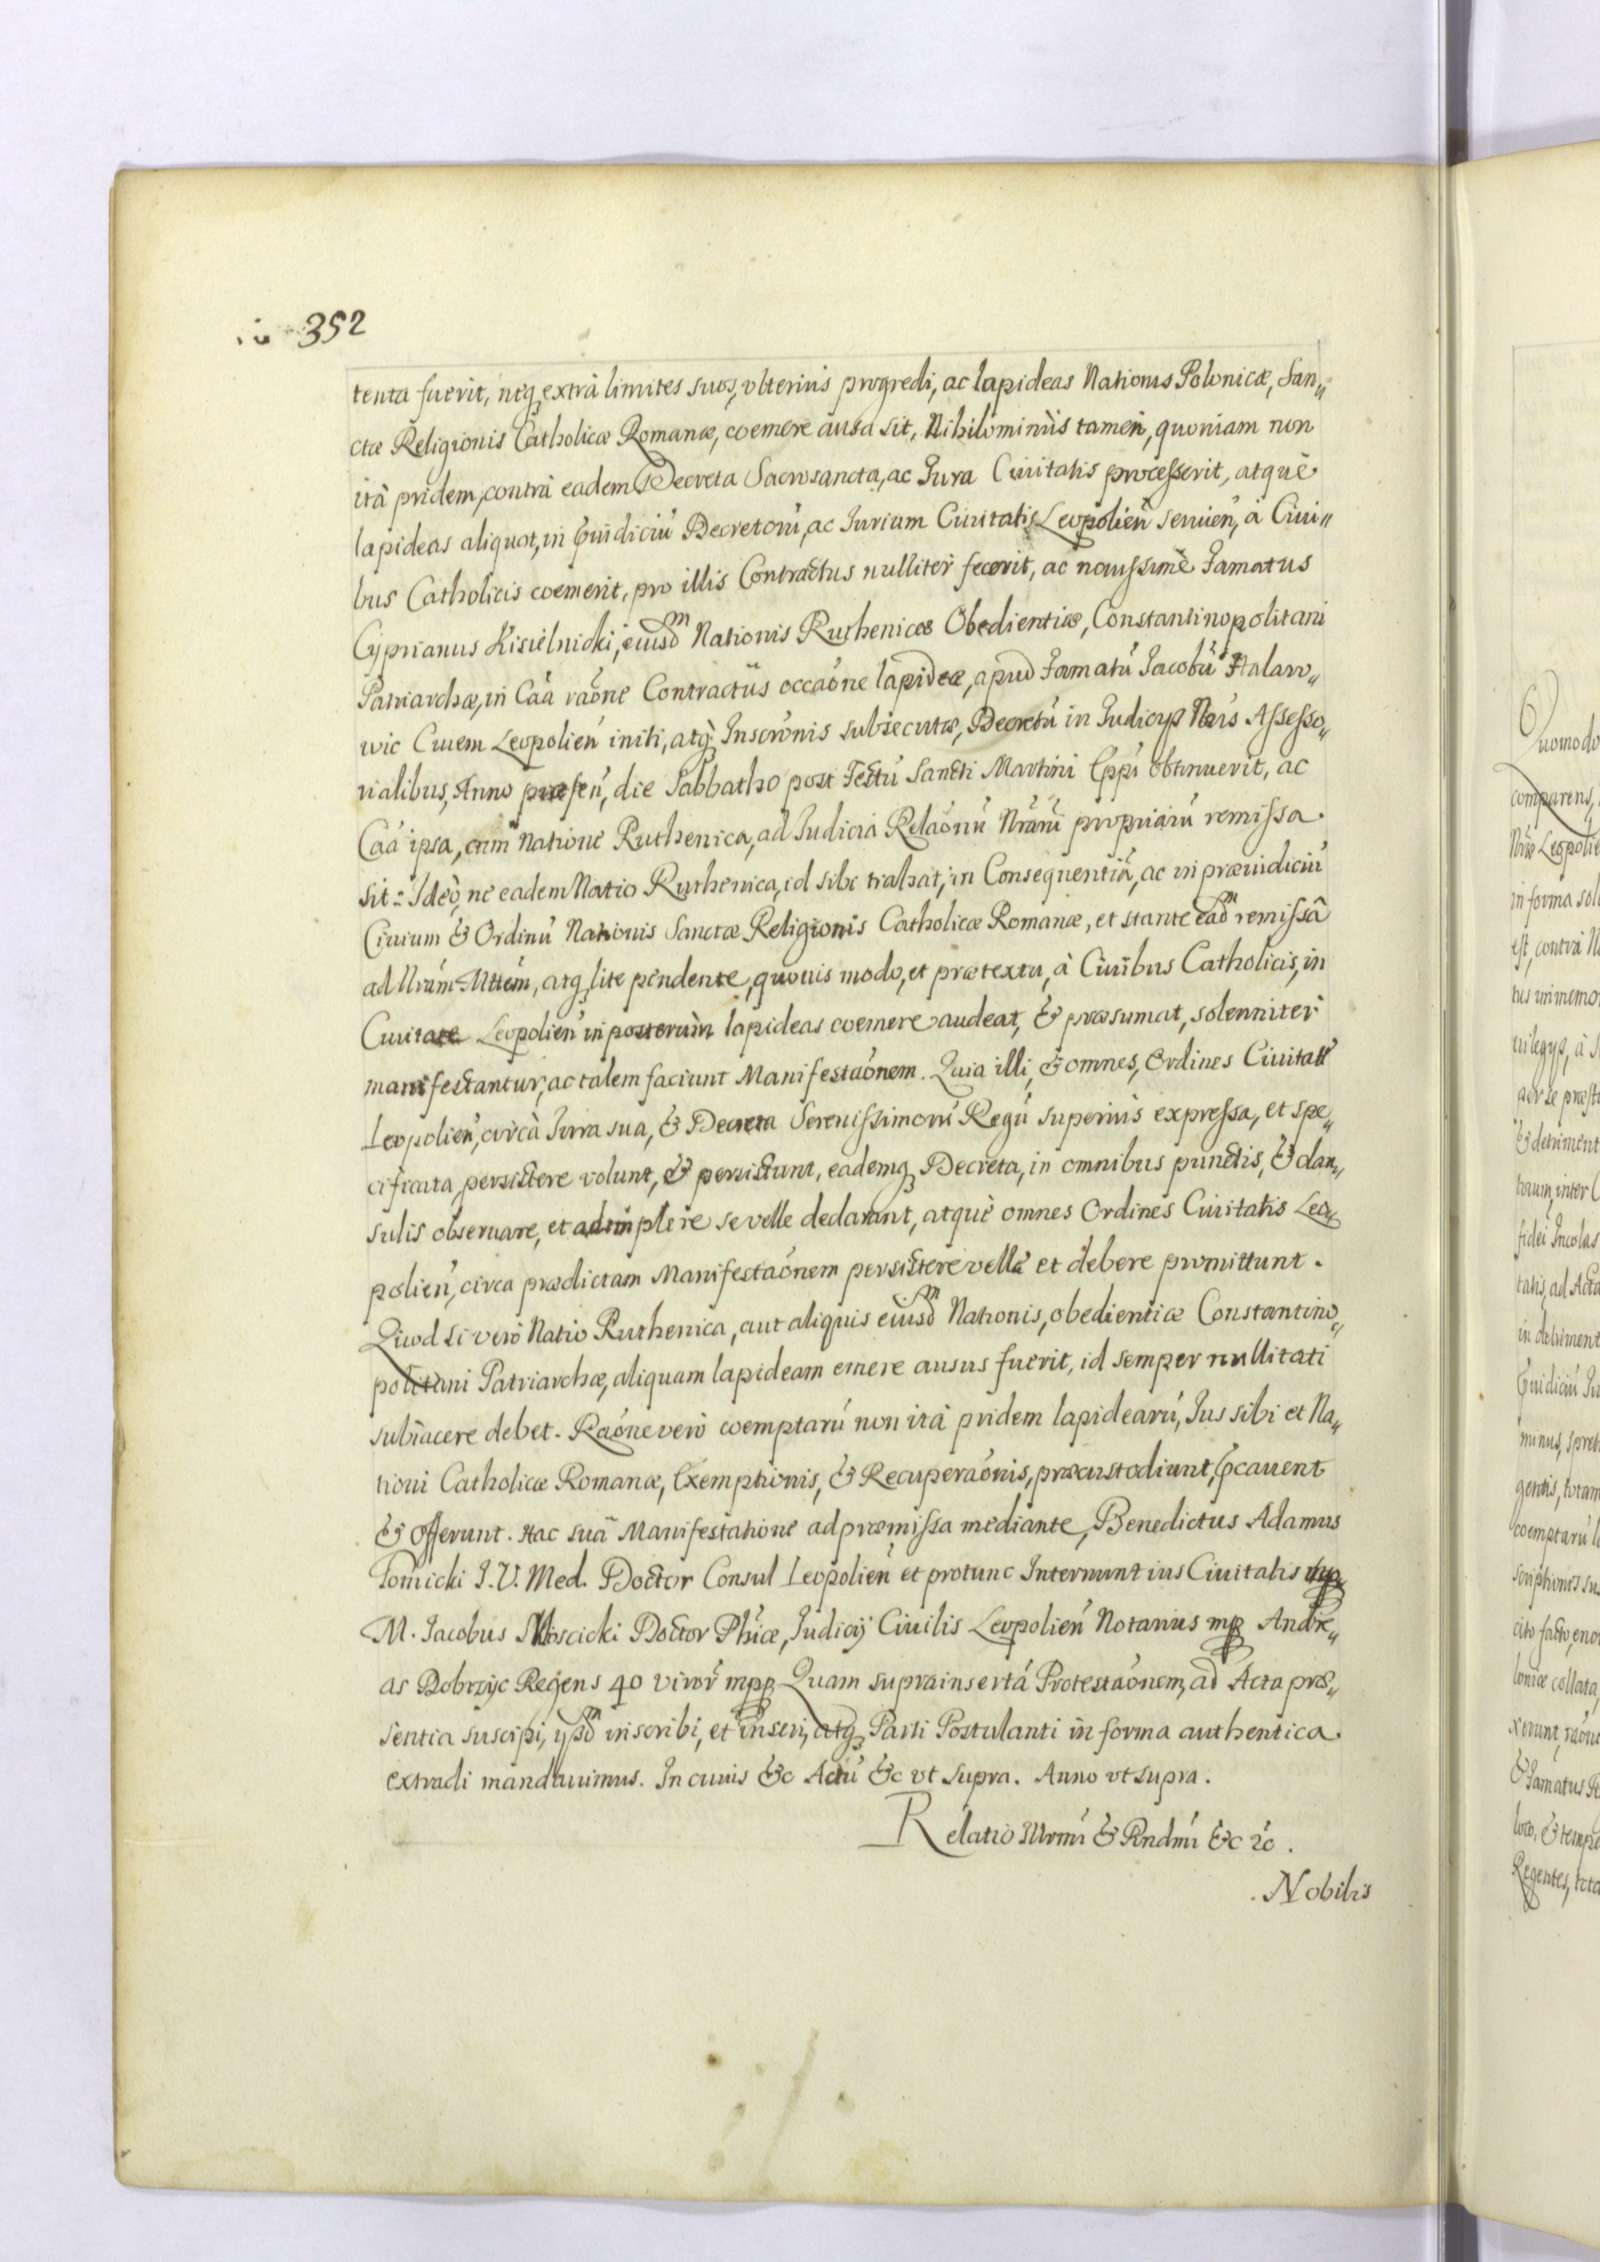 352
tenta fuerit, neq₃ extrà limites suos, vlterius progredi, ac lapideas Nationis Polonicæ, San„
ctæ Religionis Catholicæ Romanæ, coemere ausa sit, Nihilominùs tamen, quoniam non
ità pridem, contrà eadem Decreta Sacrosancta, ac Jura Ciuitatis processerit, atquè
lapideas aliquot, in Pnudiciũ Decretorũ, ac Jurium Ciuitatis Leopolien̄ seruien̄, à Ciui„
bus Catholicis coemerit, pro illis Contractus nulliter fecerit, ac nouissimè Famatus
Cyprianus Kisielnicki, eiusdm Nationis Ruthenicæ Obedientiæ, Constantinopolitani
Patriarchæ, in Caã raõne Contractûs occaõne lapideæ, apud Famatũ Jacobũ Halaw„
wic Ciuem Leopolien̄ initi, atq₃ Inscrõnis subsecutæ, Decretũ in Judicijs Nr̃is Assesso„
rialibus, Anno præsen̄, die Sabbatho post Festũ Sancti Martini Ep̃pi obtinuerit, ac
Caã ipsa, cum Natione Ruthenica, ad Judicia Relaõnũ Nr̃arũ propriarũ remissa
sit: Ideò, ne eadem Natio Ruthenica, id sibi trahat, in Consequentiã, ac in præiudiciũ
Ciuium & Ordinũ Nationis Sanctæ Religionis Catholicæ Romanæ, et stante eadm remissâ
ad Nr̃am Mttem, atq₃ lite pendente, quouis modo, et prætextu, à Ciuibus Catholicis, in
Ciuitate Leopolien̄ in posterùm lapideas coemere audeat, & præsumat, solenniter
manifestantur, ac talem faciunt Manifestaõnem. Quia illi, & omnes, Ordines Ciuitatis
Leopolien̄, circà Jura sua, & Decreta Serenissimorũ Regũ superiùs expressa, et spe„
cificata, persistere volunt, & persistunt, eademq₃ Decreta, in omnibus punctis, & clau„
sulis obseruare, et adimplere se velle declarant, atquè omnes Ordines Ciuitatis Leo„
polien̄, circa prædictam Manifestaõnem persistere velle et debere promittunt.
Quod si verò Natio Ruthenica, aut aliquis eiusdm Nationis, obedientiæ Constantino„
politani Patriarchæ, aliquam lapideam emere ausus fuerit, id semper nullitati
subiacere debet. Raõne verò coemptarũ non ità pridem lapidearũ, Jus sibi et Na„
tioni Catholicæ Romanæ, Exemptionis, & Recuperaõnis, præcustodiunt, Pcauent
& Offerunt. Hac suâ Manifestatione ad præmissa mediante, Benedictus Adamus
Tomicki J. V. Med. Doctor Consul Leopolien̄ et protunc Internuntius Ciuitatis mp
M. Jacobus Moscicki Doctor Phiæ, Judicij Ciuilis Leopolien̄ Notarius mp Andre„
as Dobrzyc Regens 40 virorũ mpp Quam suprainsertã Protestaõnem, ad Acta præ„
sentia suscipi, ijsdm inscribi, et inseri, atq₃ Parti Postulanti in forma authentica
extradi mandauimus. In cuius &c Actũ &c vt supra. Anno vt supra.
Relatio Illrmi & Rndmi &c &c.
Nobilis